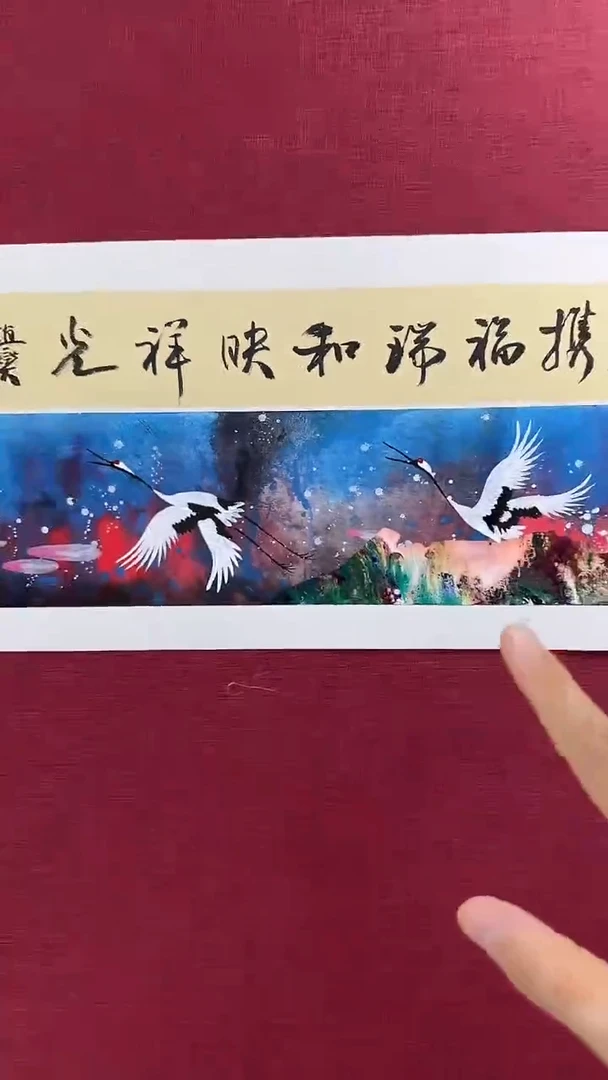 携福瑞和映祥光